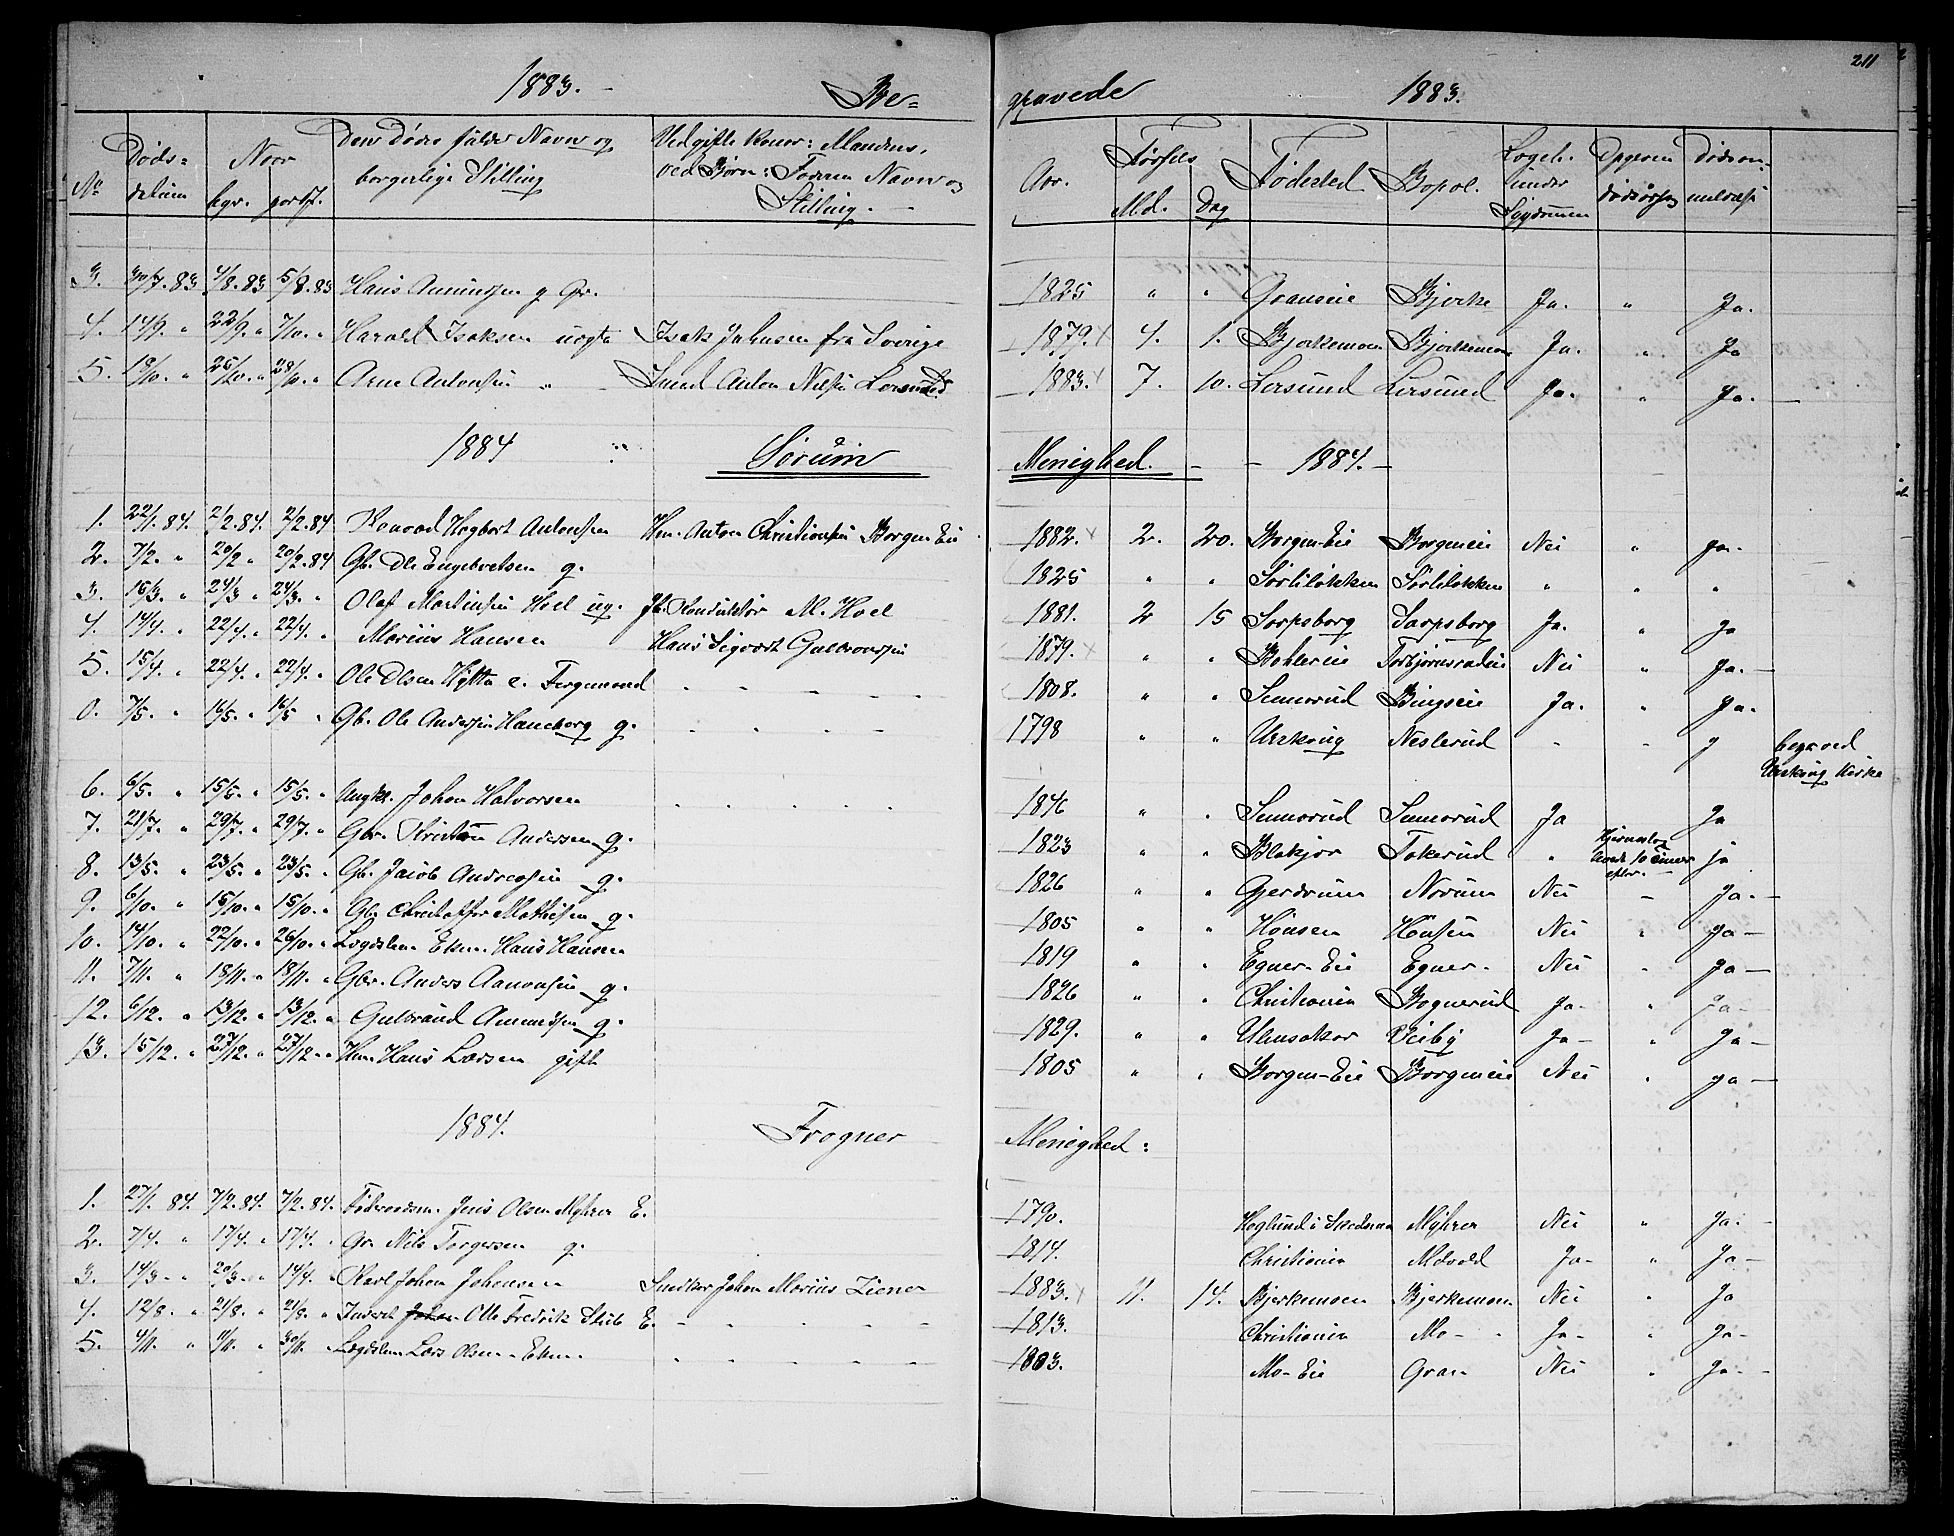 211
1883. Be= gravede 1883.
No Døds= datum Naar bgr. jordf. Den Dødes fulde Navn og borgerlige Stilling Ved gifte Koner: Mandens, ved Børn: Faderens Navn og Stilling. Aar. Fødsels Md. Dag Fødested Bopæl. under Sygdommen
3. 30/7. 83 4/8. 83 5/8. 83 Hans g Gr. 1825 " " Granseie Bjerke Ja. " Ja.
4. 14/9 " 22/9. " 7/10. " Harald Isaksen uægte Isak Johnsen fra Sverige 1879. 4. 1. Bjerkemoen Bjerkemoen Ja. " Ja
5. 19/10. " 26/10. " 28/10. " Arne Antonsen " Smed Anton Nilsen Lersund 1883. 7. 10. Lersund Lersund Ja. " Ja.
1884 Sørum Menighed. - - 1884. -
1. 22/1. 84. 2/2. 84. 2/2. 84 Konrad Hagbart Antonsen Hm. Anton Christiansen Borgen Eie 1882. 2. 20. Borgen-Eie Borgeneie Nei " Ja.
2. 7/2. " 20/2 " 20/2. 84 Gb. Ole Engebretsen g. 1825 " " Sørliløkken Sørliløkken " " "
3. 16/3. " 24/3 " 24/3. " Olaf Martinsen Hoel ug. Jb. Konduktør M. Hoel 1881. 2 15 Sarpsborg Sarpsborg Ja. " Ja
4. 14/4. " 22/4. " 22/4. " Marius Hansen Hans Sigvart Gulbrandsen 1879. " " Bøhlereie Nei " Ja.
5. 15/4. " 22/4. " 22/4. " Ole Olsen Hytta e. 1808. " " Semmerud Bingseie Ja. " Ja.
0. 7/5. " 16/5. " 16/5 " Gb. Ole Andersen Haneborg g. 1798 " " Urskoug Neslerud - - J begr. ved Urskoug Kirke
6. 6/5. " 15/5. " 15/5. " Ungkr. Johan Halvorsen 1846 " " Semmerud Semmerud Ja Ja
7. 21/7. " 29/7. " 29/7. " Gbr. Kristian Andersen g. 1823 " " Blakjer Tokerud " Hjerneslag døde 10 timer efter. ja
8. 13/5. " 23/5. " 23/5. " Gb. Jacob Andreasen g. 1826 " " Gjerdrum Norum Nei - Ja.
9. 6/10. " 15/10. " 15/10. " Gb. Christoffer Mathisen g. 1805 " " Hønsen Hønsen Nei " Ja -
10. 14/10. " 22/10. " 26/10. " Lægdslem Hans Hansen 1819 " " Egner-Eie Egner. Nei " Ja -
11. 7/11. " 18/11. " 18/11. " Gbr. Anders Aanonsen g. 1826 " " Christiania Bognerud Ja- " Ja-
12. 6/12. " 13/12. " 13/12. " Gulbrand Amundsen g. 1829. " " Ullensaker Veiby Ja - " Ja -
13. 15/12. " 27/12. " 27/12. " Hm. Hans Larsen gift 1805 " " Borgen-Eie Borgeneie Nei " Ja -
1884. Frogner Menighed:
1. 27/1. 84. 7/2. 84. 7/2. 84. Føderaadsm. Jens Olsen Myhrer E. 1790. Myhrer Nei " Ja. -
2. 7/4. " 17/4. " 17/4. " Gr. Nils Torgersen g. 1814. Christiania Melvold Ja- " Ja -
3. 14/3. " 20/3. " 14/4. " Karl Johan Johansen Snedker Johan Marius Ziener 1883. 11. 14. Bjerkemoen Bjerkemoen Nei " Ja
4. 12/8. " 21/8. " 21/8. " Inderst Johan Otto Fredrik Stub E. 1813. Christiania Mo- Ja- " Ja-
5. 4/11. " 11/11. " 30/11. " Lægdslem Lars Olsen 1883. Mo-Eie Gran Nei " Ja. -